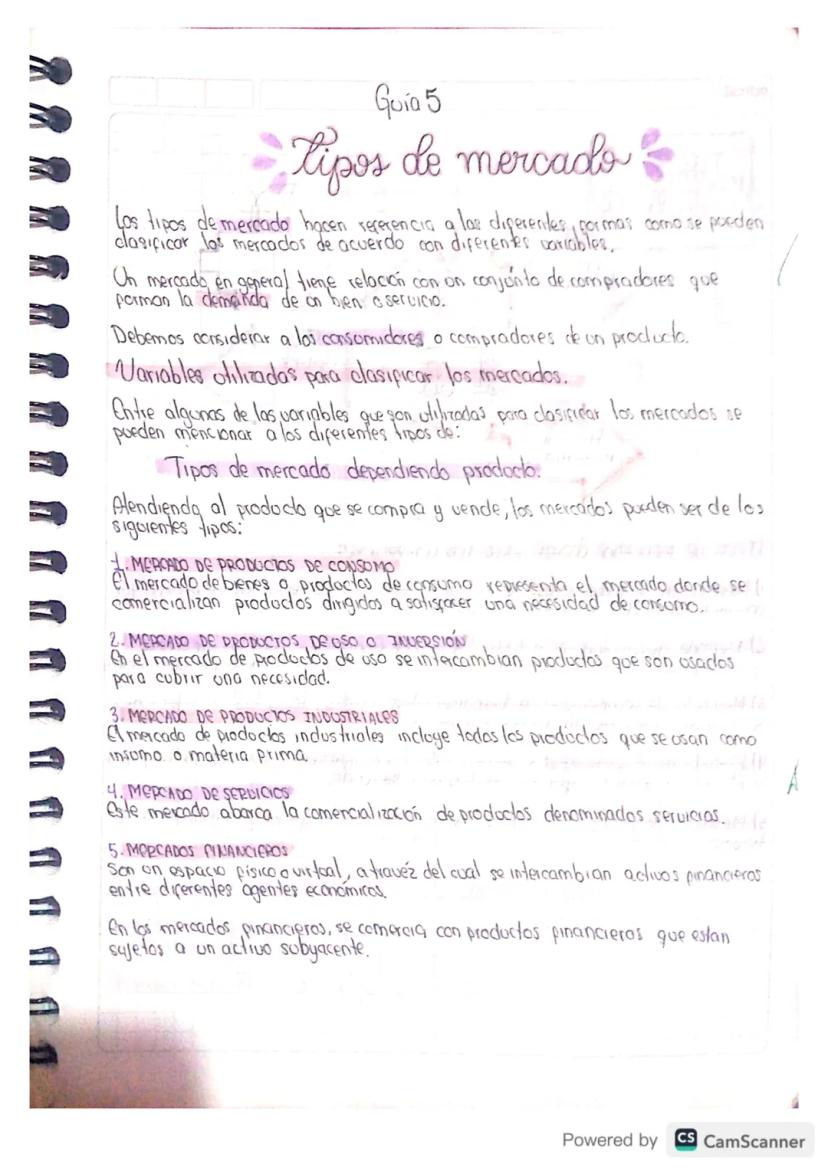 Guía 5
Tipos de mercado
Los tipos de mercado hacen referencia a las diferentes formas como se pueden
clasificar los mercados de acuerdo con diferentes variables.
Un mercado en general tiene relación con un conjunto de compradores que
forman la demanda de un bien o servicio.
Debemos considerar a los consumidores o compradores de un producto.
Variables utilizadas para clasificar los mercados.
Entre algunas de las variables que son utilizadas para clasificar los mercados se
pueden mencionar a los diferentes tipos de:
Tipos de mercado dependiendo producto.
Atendiendo al producto que se compra y vende, los mercados pueden ser de los
siguientes tipos:
1. MERCADO DE PRODUCTOS DE CONSUMO
El mercado de bienes o productos de consumo representa el mercado donde se
comercializan productos dirigidos a satisfacer una necesidad de consumo.
2. MERCADO DE PRODUCTOS DE USO O INVERSIÓN
En el mercado de productos de uso se intercambian productos que son usados
para cubrir una necesidad.
3. MERCADO DE PRODUCTOS INDUSTRIALES
El mercado de productos industriales incluye todos los productos que se usan como
insumo o materia prima
4. MERCADO DE SERVICIOS
Este mercado abarca la comercialización de productos denominados servicios.
5. MERCADOS FINANCIEROS
Son un espacio físico o virtual, a travéz del cual se intercambian activos financieros
entre diferentes agentes económicos.
En los mercados financieros, se comercia con productos financieros que estan
sujetos a un activo subyacente.
Powered by CS CamScanner